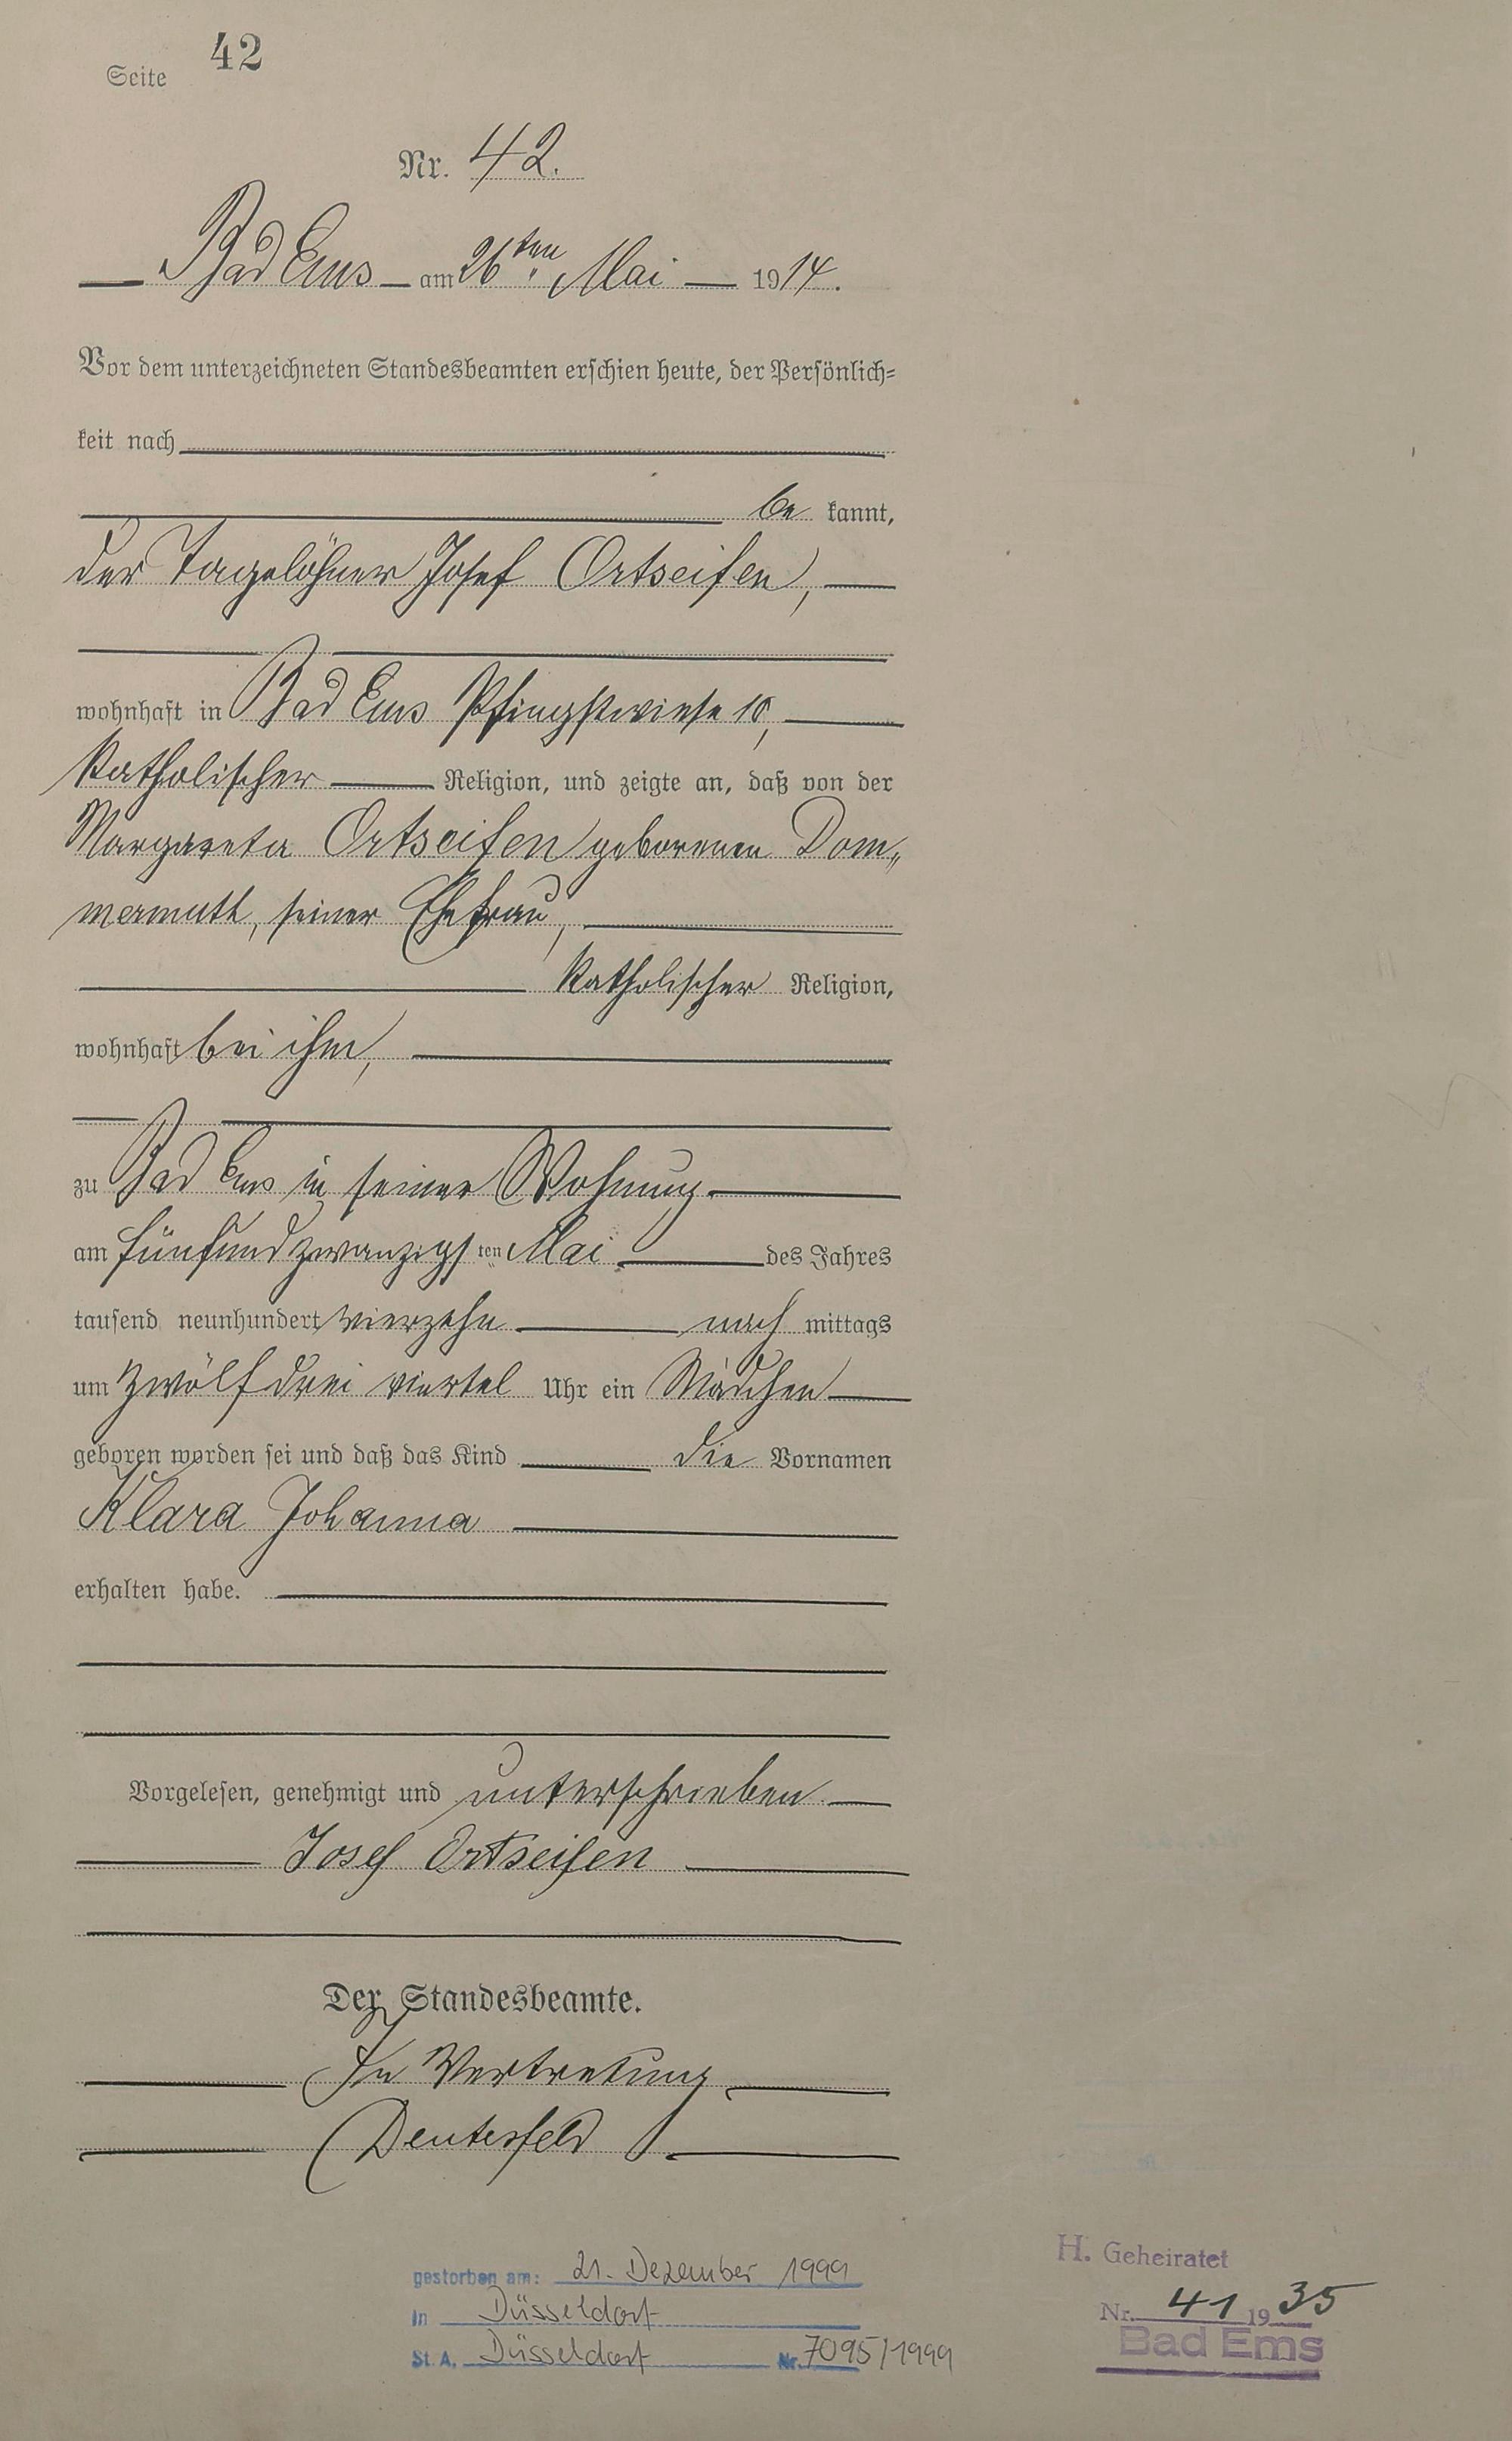 Seite 42
Nr. 42.
Bad Ems am 26ten Mai 1914.
Vor dem unterzeichneten Standesbeamten erschien heute, der Persönlich=
keit nach
be kannt,
der Tagelöhner Josef Ortseifen,
wohnhaft in Bad Ems Pfingstwiese 10,
katholischer Religion, und zeigte an, daß von der
Margareta Ortseifen geborenen Dom„
mermuth, seiner Ehefrau,
katholischer Religion,
wohnhaft bei ihm,
zu Bad Ems in seiner Wohnung
am fünfundzwanzigsten Mai des Jahres
tausend neunhundert vierzehn nach mittags
um zwölf drei viertel Uhr ein Mädchen
geboren worden sei und daß das Kind die Vornamen
Klara Johanna
erhalten habe.
Vorgelesen, genehmigt und unterschrieben
Josef Ortseifen
Der Standesbeamte.
In Vertretung
Deutesfeld
gestorben am: 21. Dezember 1999
in Düsseldorf
St. A. Düsseldorf Nr. 7095/1999
H. Geheiratet
Nr. 41 1935
Bad Ems